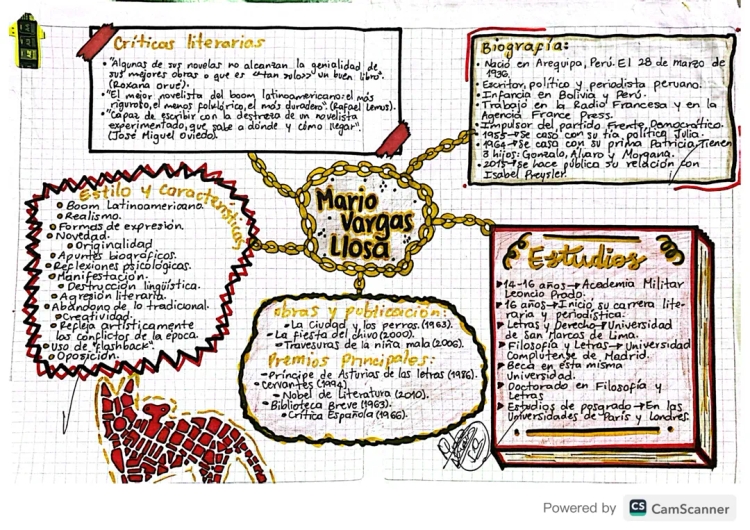 Críticas literarias
"Algunas de sus novelas no alcanzan la genialidad de
sus mejores obras o que es <<tan solo>> un buen libro".
(Roxana orué).
"El mejor novelista del boom latinoamericano: el más
riguroto, el menos folklórico, el más duradero". (Rafael Lemus).
"Capaz de escribir con la destreza de un novelista
experimentado, que sabe a dónde y cómo llegar".
(José Miguel Oviedo).
Biografía:
Nació en Arequipa, Perú. El 28 de marzo de
1936.
Escritor, político y periodista peruano.
Infancia en Bolivia y Perú.
Trabajó en la Radio Francesa y en la
Agencia France Press.
Impulsor del partido Frente Democrático.
1955→Se casó con su tía política Julia.
1964→Se casó con su prima Patricia. Tienen
3 hijos: Gonzalo, Álvaro y Morgana.
2015→Se hace pública su relación con
Isabel Preysler.
Mario
Vargas
Llosa
Estilo y características
Boom Latinoamericano.
Realismo.
Formas de expresión.
Novedad.
Originalidad
Apuntes biográficos.
Reflexiones psicológicas.
Manifestación.
Destrucción lingüística.
Agresión literaria.
Abandono de lo tradicional.
Creatividad.
Refleja artísticamente
los conflictos de la época.
Uso de "flashback".
Oposición.
Obras y publicación:
La Ciudad y los perros. (1963).
La fiesta del chivo (2000).
Travesuras de la niña mala (2006).
Premios Principales:
Príncipe de Asturias de las letras (1986).
Cervantes (1994).
Nobel de Literatura (2010).
Biblioteca Breve (1963).
Crítica Española (1966).
Estudios
14-16 años→Academia Militar
Leoncio Prado.
16 años→Inició su carrera lite-
raria y periodística.
Letras y Derecho→Universidad
de San Marcos de Lima.
Filosofía y Letras→Universidad
Complutense de Madrid.
Beca en esta misma
Universidad.
Doctorado en Filosofía y
Letras
Estudios de posgrado→En las
Universidades de París y Londres.
Powered by CS CamScanner